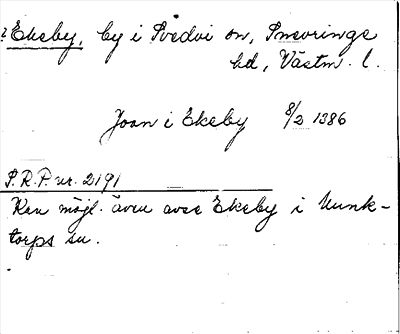 ? Ekeby, by i Svedvi sn, Snevringe
hd, Västm. l.
Joan i Ekeby 8/2 1386
S.R.P. nr. 2191
Kan möjl. även avse Ekeby i Munk-
torps sn.